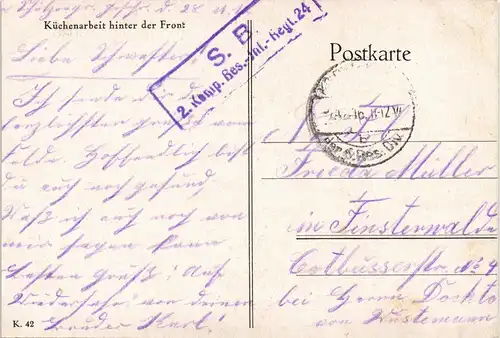 Küchenarbeit hinter der Front
S. B.
2. Komp. Res.-Inf.-Regt. 24
Schützengr. geschr. d. 28. 11.
Liebe Schwester
Ich sende dir die
herzlichsten Grüße vom
Felde Hoffendlich bist
du auch noch gesund.
Waß ich auch noch von
mir sagen kann.
Besten Gruß! Auf
Wiedersehn von deinen
Bruder Karl!
K. 42
Postkarte
der 6. Res. Div.
Frieda Müller
in Finsterwalde
Cottbusserstr. No 4
bei Herrn Docktor
von Wustemann